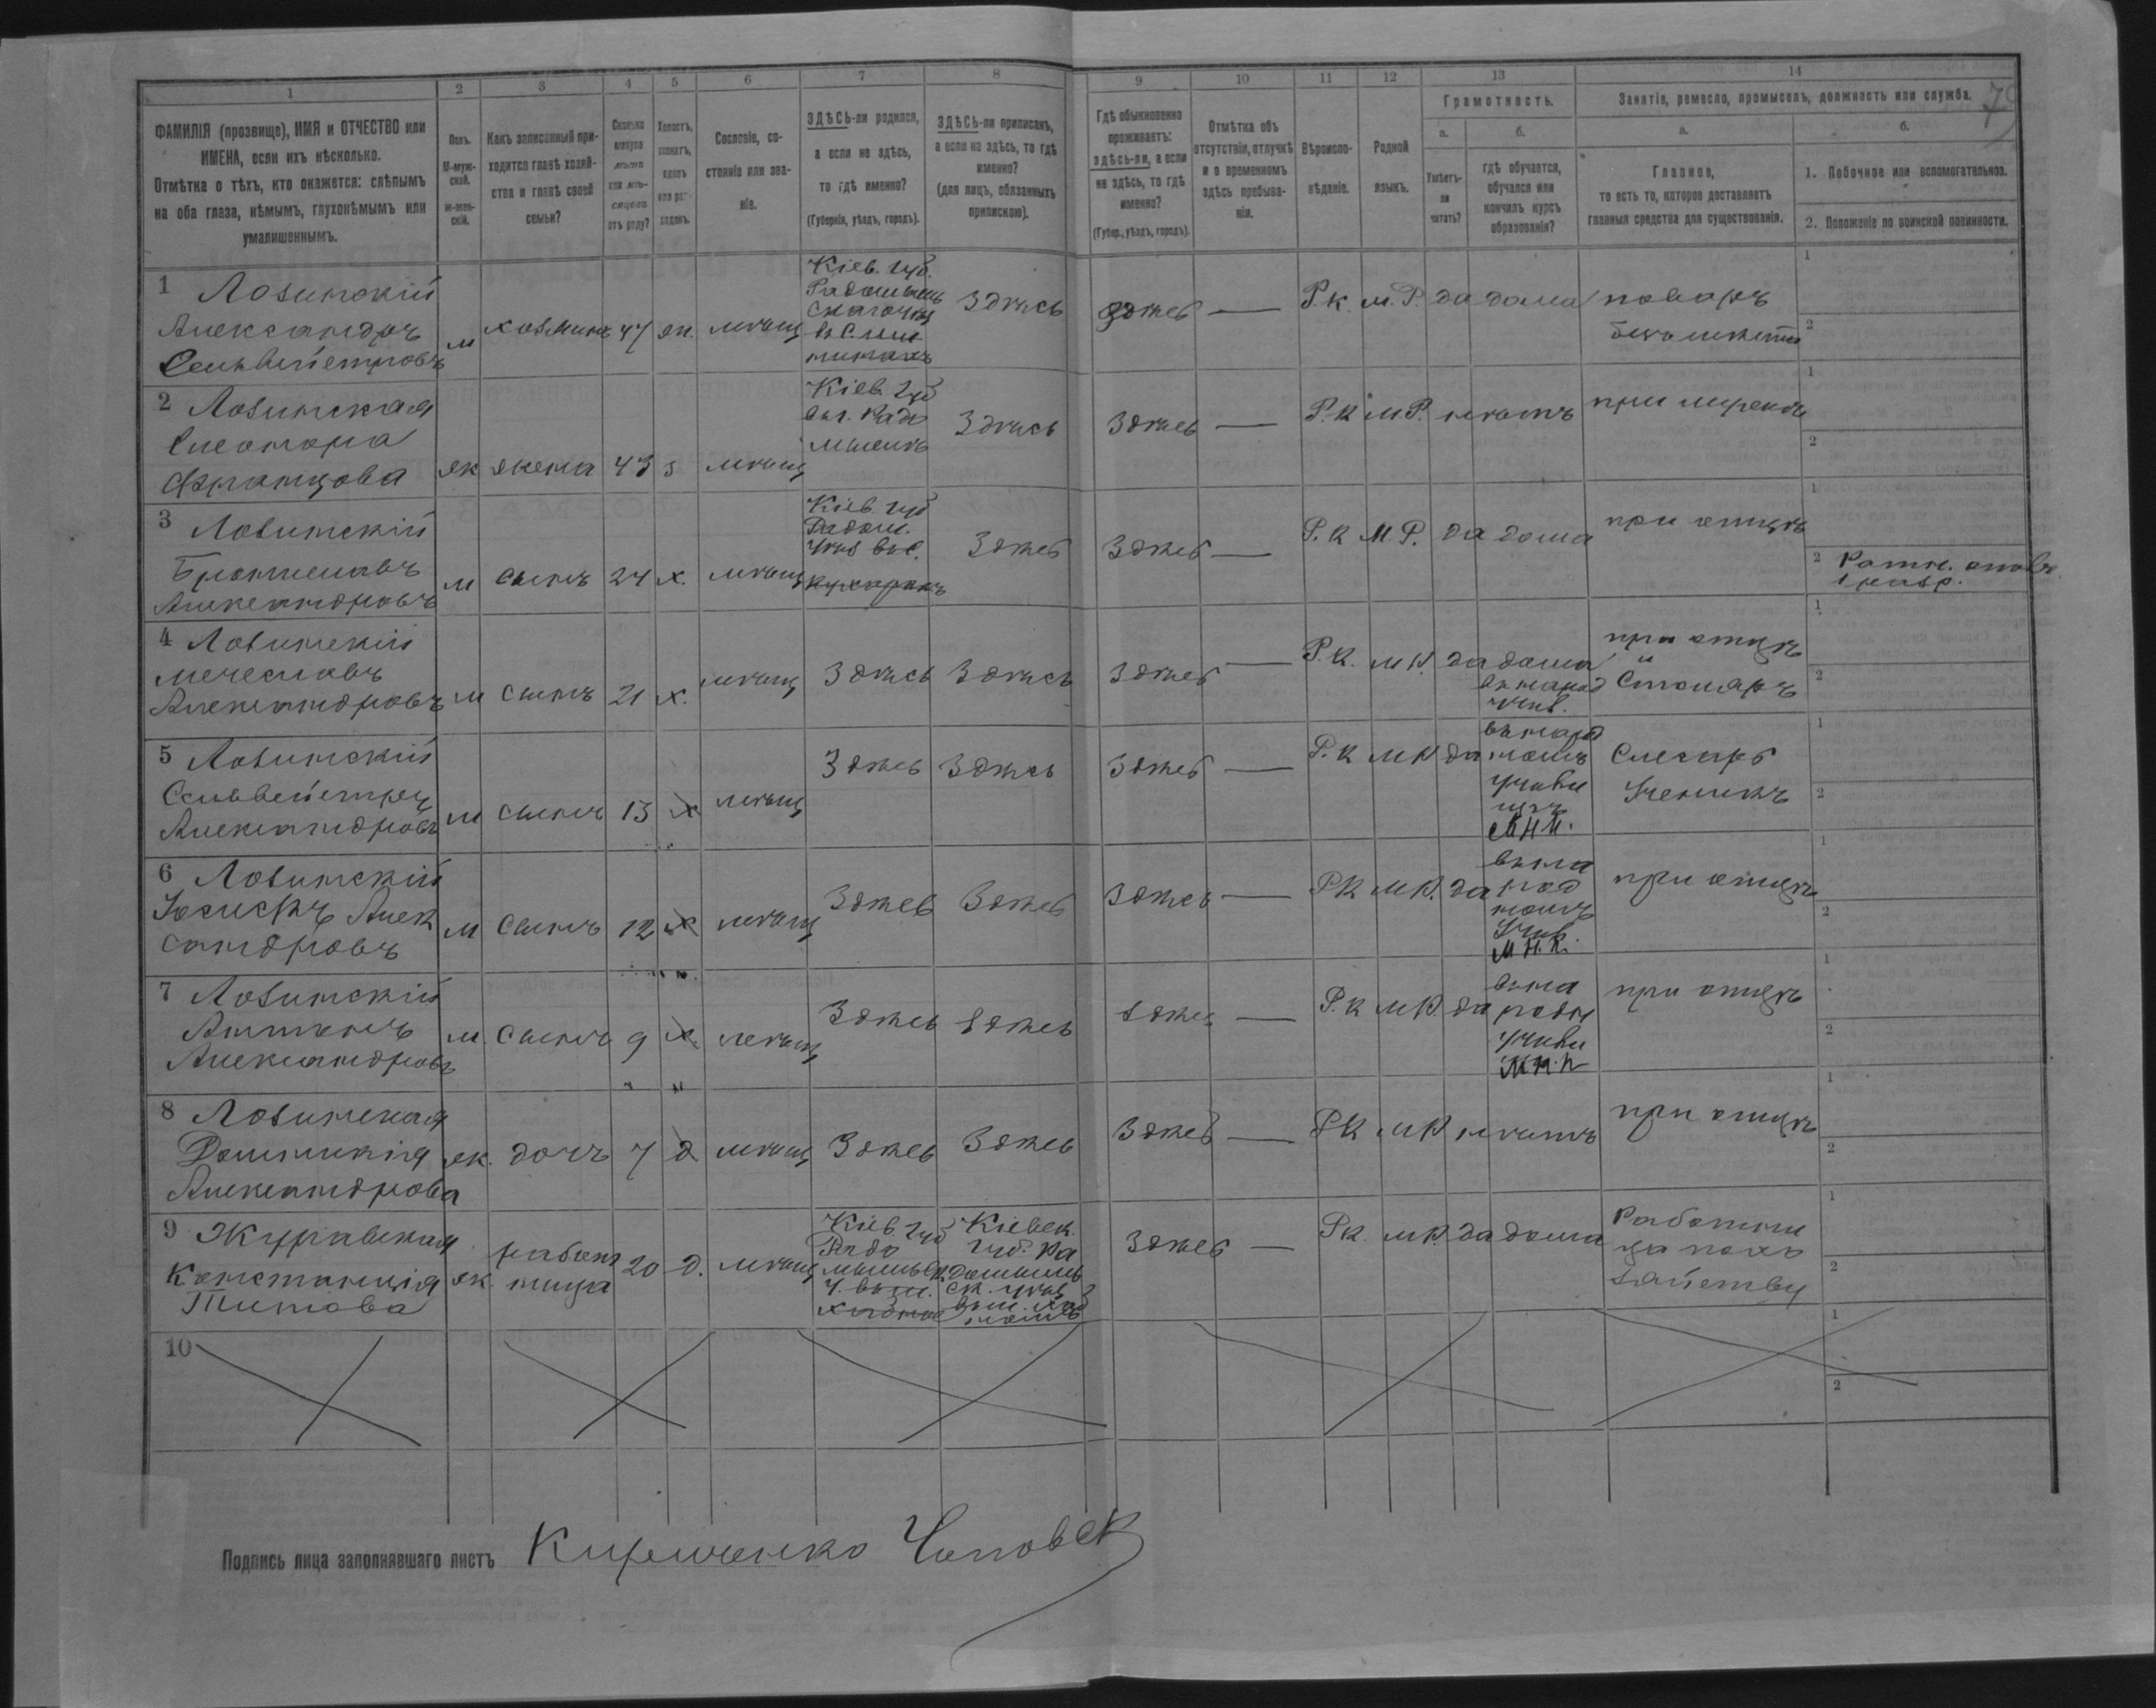 1 2 3 4 5 6 7 8 9 10 11 12 13 14
ФАМИЛІЯ (прозвище), ИМЯ и ОТЧЕСТВО или
ИМЕНА, если ихъ нѣсколько.
Отмѣтка о тѣхъ, кто окажется: слѣпымъ
на оба глаза, нѣмымъ, глухонѣмымъ или
умалишеннымъ.
Полъ.
М-муж-
ской.
ж-жен-
скій.
Какъ записанный при-
ходится главѣ хозяй-
ства и главѣ своей
семьи?
Сколько
минуло
лѣтъ
или мѣ-
сяцевъ
отъ роду?
Холостъ,
женатъ,
вдовъ
или раз-
веденъ.
Сословіе, со-
стояніе или зва-
ніе.
ЗДѢСЬ-ли родился,
а если не здѣсь,
то гдѣ именно?
(Губернія, уѣздъ, городъ).
ЗДѢСЬ-ли приписанъ,
а если не здѣсь, то гдѣ
именно?
(для лицъ, обязанныхъ
припискою).
Гдѣ обыкновенно
проживаетъ:
здѣсь-ли, а если
не здѣсь, то гдѣ
именно?
(Губер., уѣздъ, городъ).
Отмѣтка объ
отсутствіи, отлучкѣ
и о временномъ
здѣсь пребыва-
ніи.
Вѣроиспо-
вѣданіе.
Родной
языкъ.
Грамотность.
а.
Умѣетъ-
ли
читать?
б.
гдѣ обучается,
обучался или
кончилъ курсъ
образованія?
Занятіе, ремесло, промыселъ, должность или служба.
а.
Главное,
то есть то, которое доставляетъ
главныя средства для существованія.
б.
1. Побочное или вспомогательное.
2. Положеніе по воинской повинности.
1 Лозинскій
Александръ
Сильвейстровъ
м хозяинъ 47 ж. мѣщ
Кіев. губ.
Радомысль
Здѣсь здѣсь — Р.К. м.Р. да дома поваръ
безъ мѣста
2 Лозинская
Елеонора
Францова
ж жена 43 з мѣщ
Кіев. губ
Радо
мыслѣ
Здѣсь Здѣсь — Р.К М.Р. нѣтъ при мужѣ
3 Лозинскій
Брониславъ
Александровъ
м сынъ 24 х. мѣщ
Кіев. губ
Радом.
Уѣз
Здѣсь Здѣсь — Р.К М.Р. да дома при отцѣ
2 Ратн. опол.
1 разр.
4 Лозинскій
мечеславъ
Александровъ
м сынъ 21 х. мѣщ Здѣсь Здѣсь Здѣсь — Р.К. м.Р. да дома
въ народ
учил.
при отцѣ
и
Столяръ
5 Лозинскій
Сильвейстръ
Александровъ
м сынъ 13 х мѣщ Здѣсь Здѣсь Здѣсь — Р.К м.Р да
въ народ
номъ
училищѣ
Слесарь
Ученикъ
6 Лозинскій
Юсифъ Алек
сандровъ
м сынъ 12 х мѣщ Здѣсь Здѣсь Здѣсь — РК м.Р. да
въ на
род
номъ
Учил.
при отцѣ
7 Лозинскій
Антонъ
Александровъ
м. сынъ 9 х. мѣщ Здѣсь Здѣсь Здѣсь — Р.К м.Р. да
въ на
родн
Училищ
при отцѣ
8 Лозинская
Доминикія
Александрова
ж. дочь 7 д мѣщ Здѣсь Здѣсь Здѣсь — РК м.Р нѣтъ при отцѣ
9 Журавская
Констанція
Титова
ж. работ
ница 20 д. мѣщ
Кіев. губ
Радо
мысльск.
Кіевск.
губ. Ра
домысль
ск. уѣз
Здѣсь — РК м.Р. да дома
Работни
ца по хо
зяйству
10
Подпись лица заполнявшаго листъ